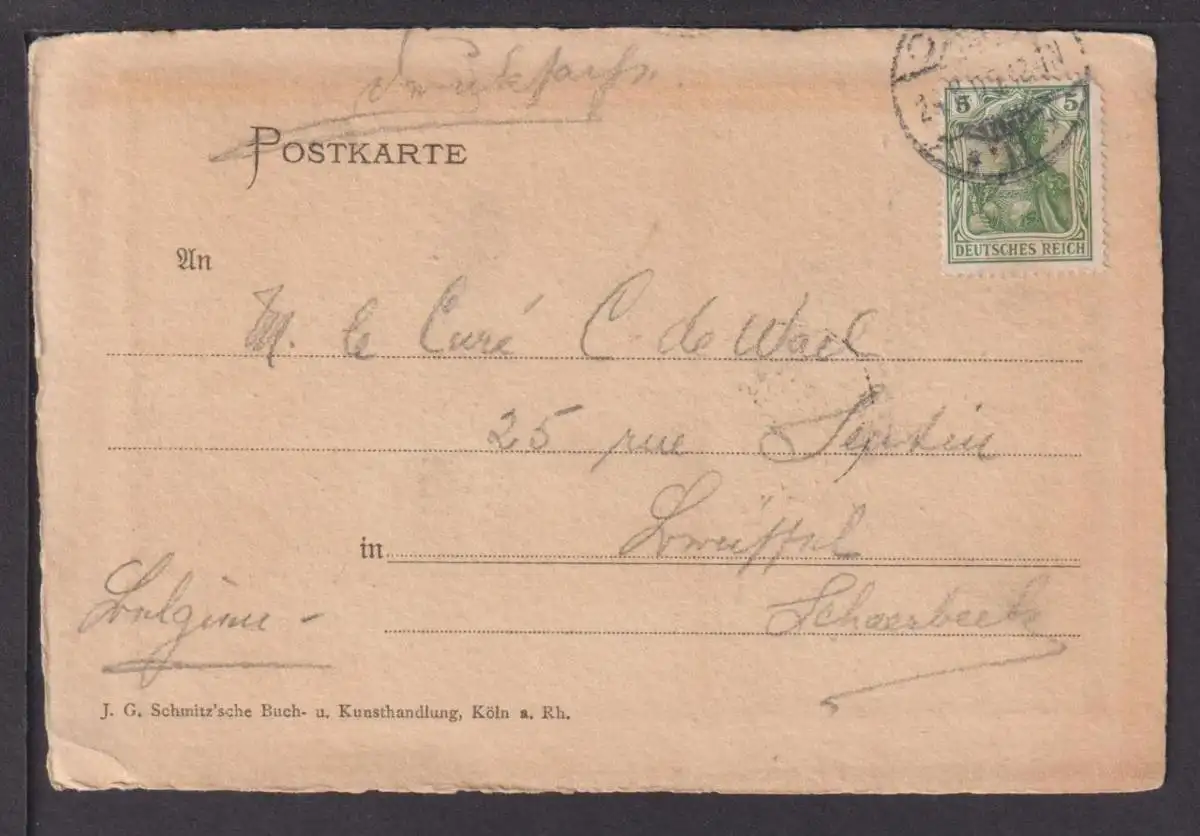 Drucksache
POSTKARTE
5 5
DEUTSCHES REICH
An
M. le Curé C. de Wael
25 rue
in Brüssel
Schaerbeek
Belgium
J. G. Schmitz'sche Buch- u. Kunsthandlung, Köln a. Rh.